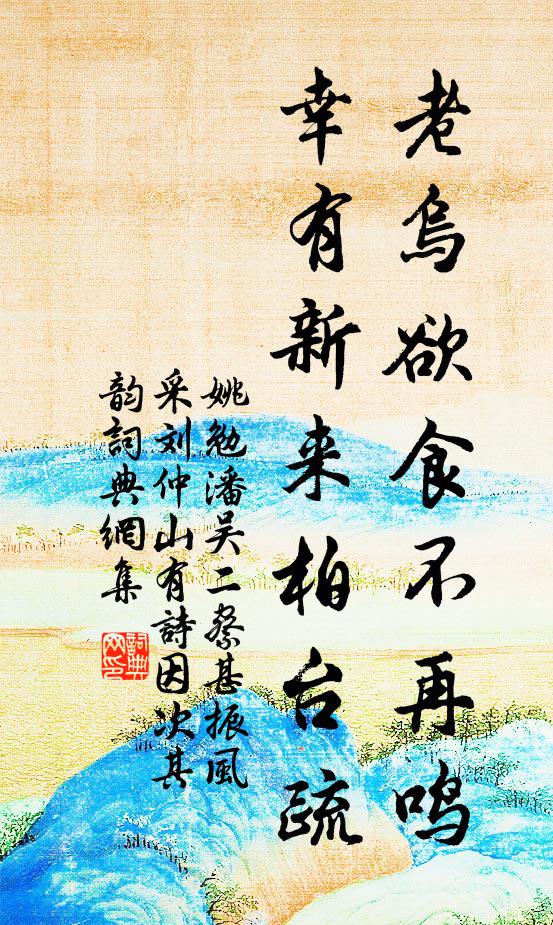 老烏欲食不再鳴
幸有新来柏台疏
姚勉潘吴二察甚振風
采刘仲山有詩因次其
韵詞典網集
詞典
网印